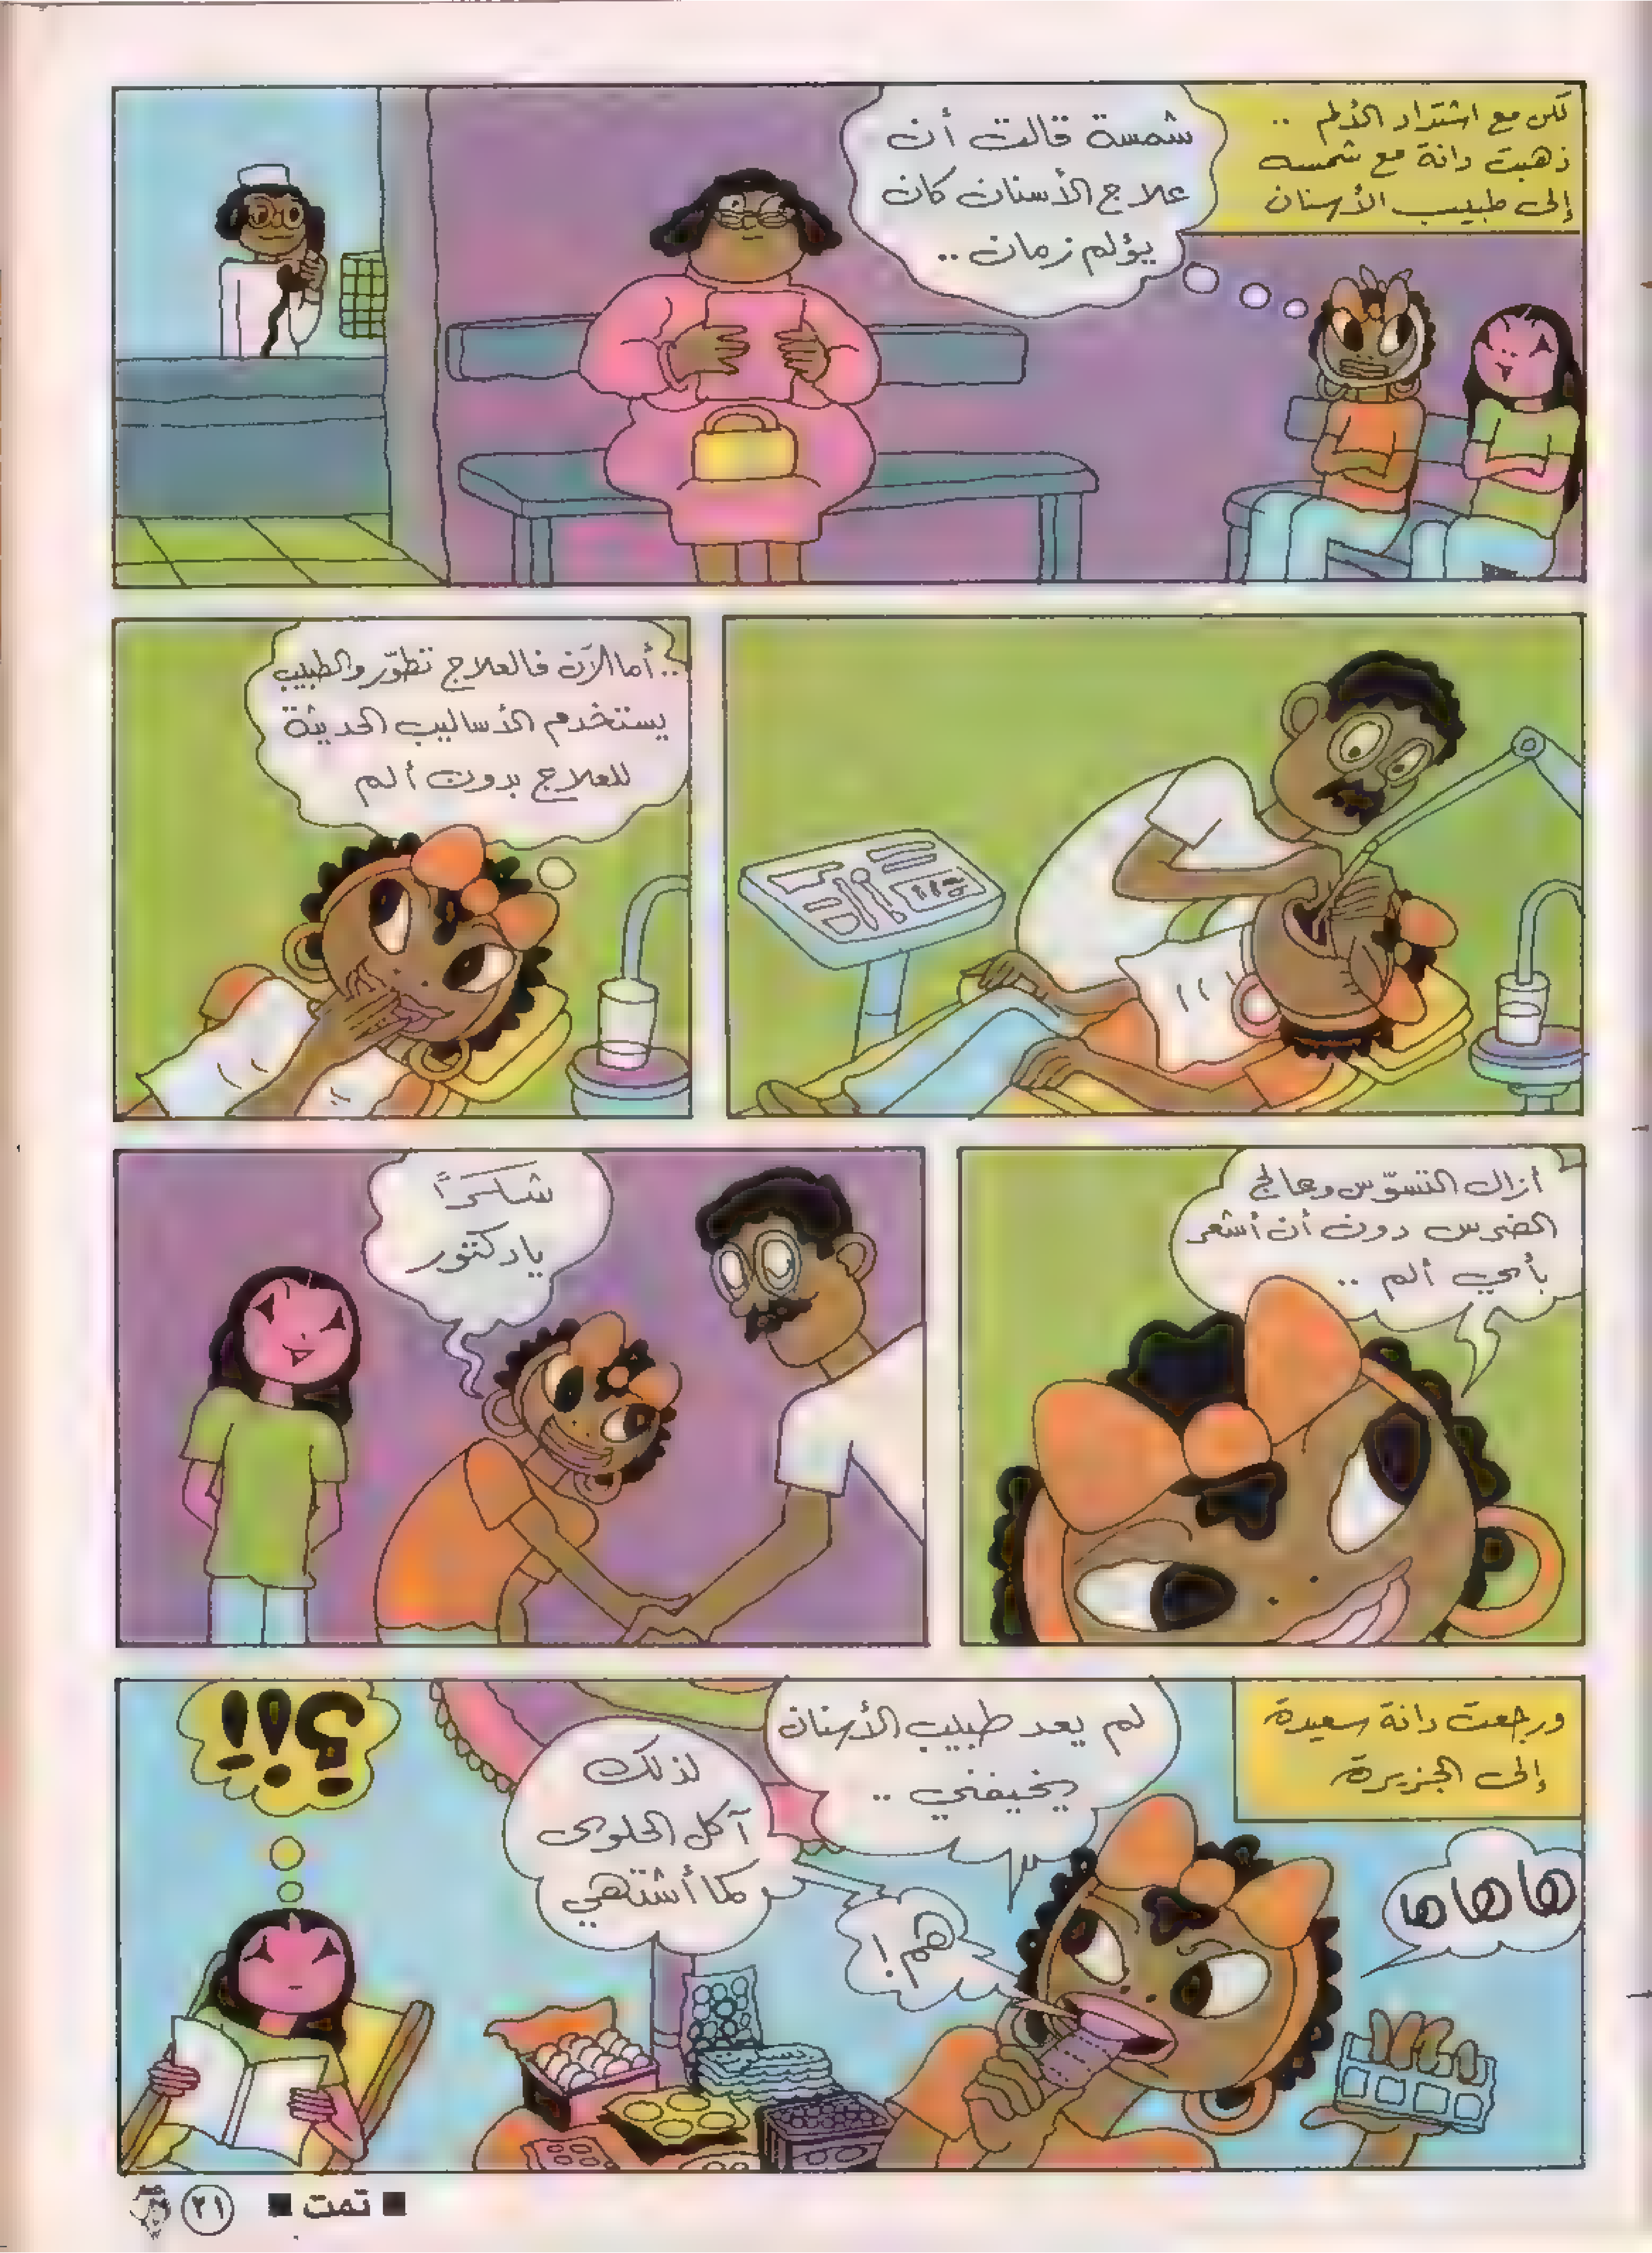 لكن مع اشتداد الألم ..
ذهبت دانة مع شمسه
إلى طبيب الأسنان
شمسة قالت أن
علاج الأسنان كان
يؤلم زمان ..
.. أما الآن فالعلاج تطوّر والطبيب
يستخدم الأساليب الحديثة
للعلاج بدون ألم
أزال التسوّس وعالج
الضرس دون أن أشعر
بأي ألم ..
شكرًا
يا دكتور
ورجعت دانة سعيدة
إلى الجزيرة
هاهاها
لم يعد طبيب الأسنان
يخيفني ..
لذلك
آكل الحلوى
كما أشتهي
هم!
؟!!
■ تمت ■ ٢١